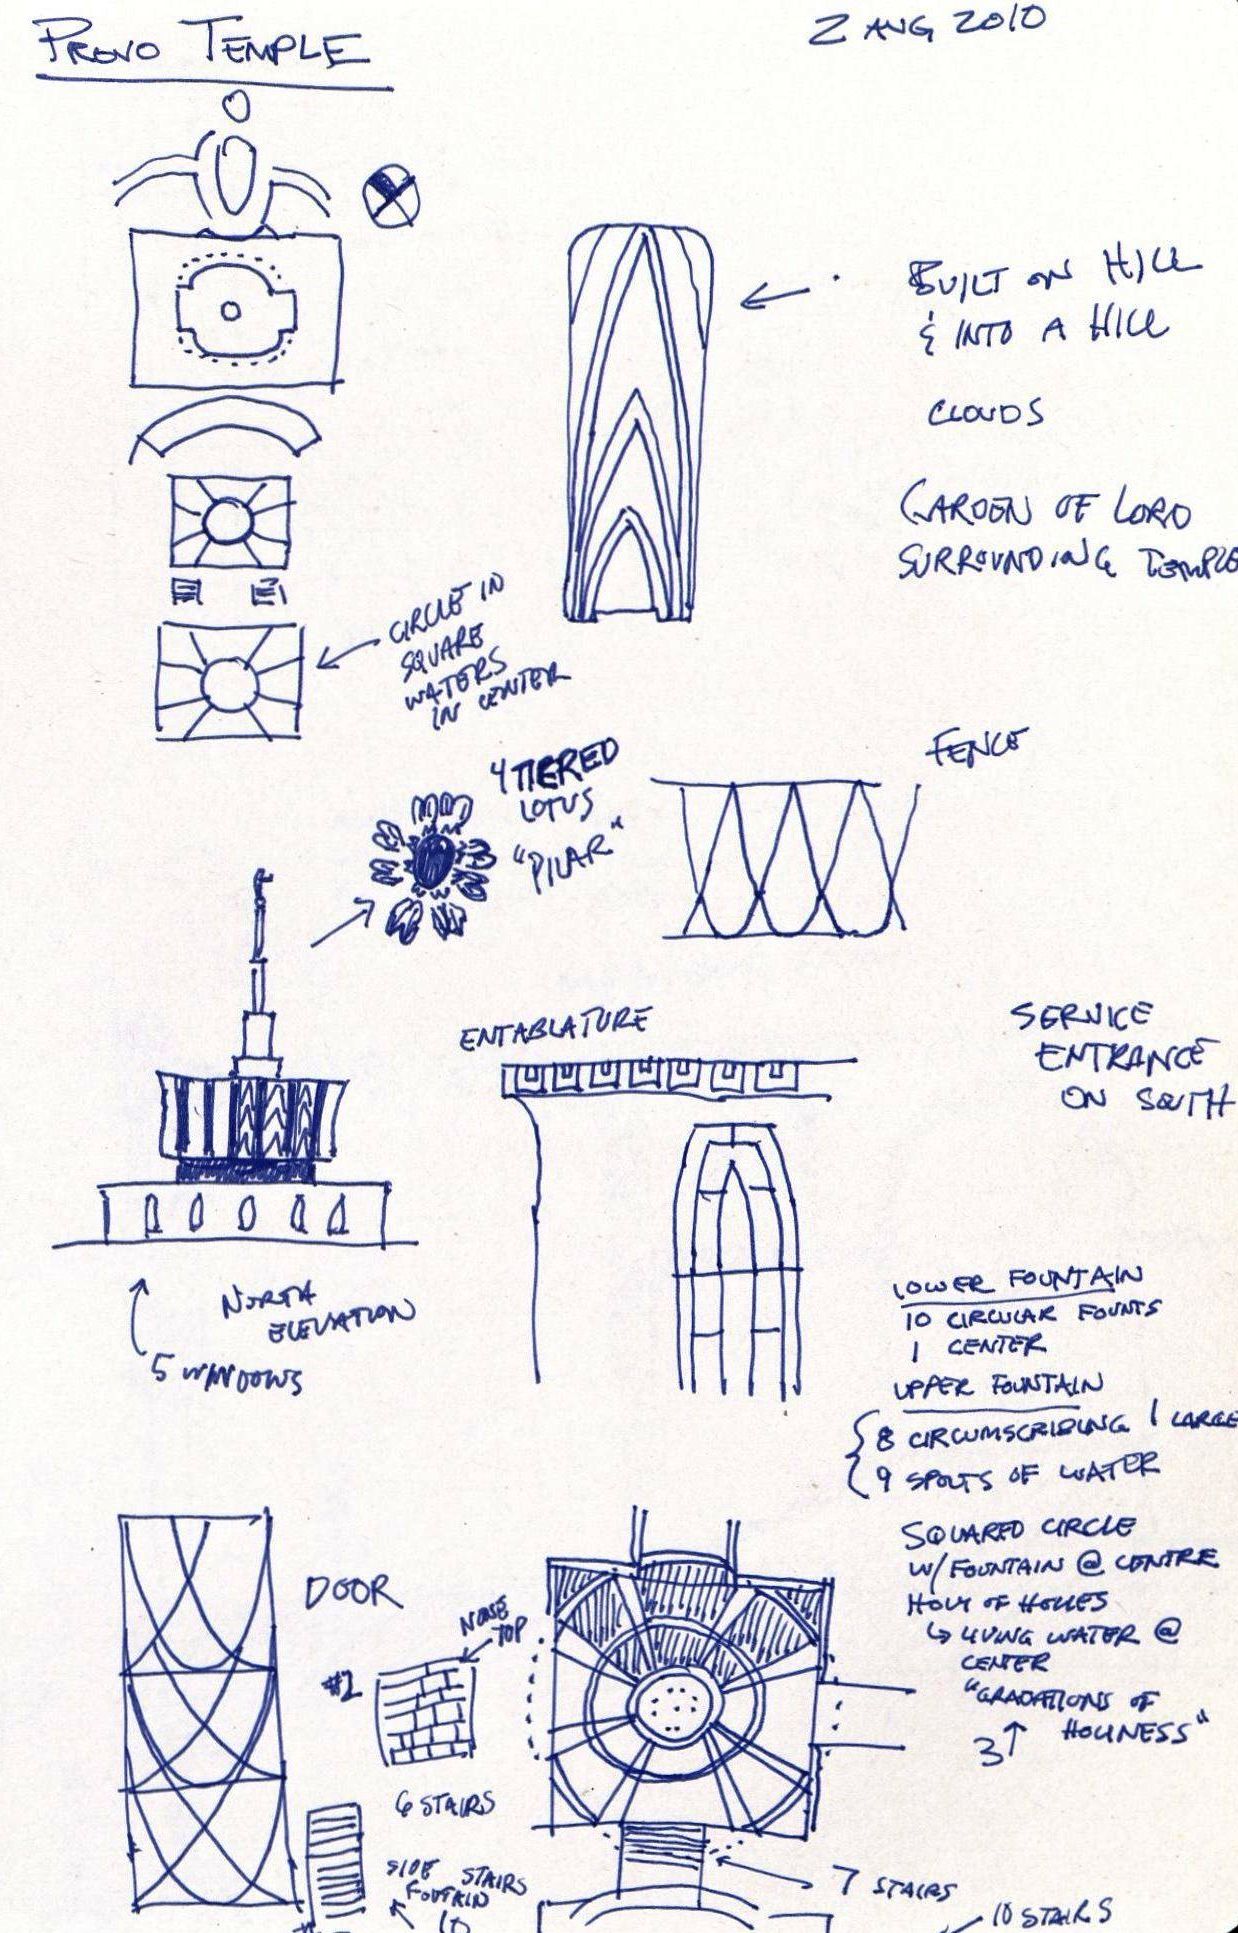 PROVO TEMPLE
2 AUG 2010
BUILT ON HILL
& INTO A HILL
CLOUDS
GARDEN OF LORD
SURROUNDING TEMPLE
CIRCLE IN
SQUARE
WATERS
IN CENTER
4 TIERED
LOTUS
"PILAR"
FENCE
ENTABLATURE
SERVICE
ENTRANCE
ON SOUTH
NORTH
ELEVATION
5 WINDOWS
LOWER FOUNTAIN
10 CIRCULAR FOUNTS
1 CENTER
UPPER FOUNTAIN
8 CIRCUMSCRIBING 1 LARGE
9 SPOUTS OF WATER
SQUARED CIRCLE
W/ FOUNTAIN @ CENTRE
HOLY OF HOLIES
↳ LIVING WATER @
CENTER
"GRADATIONS OF
HOLINESS"
3
DOOR
NONE
TOP
#2
6 STAIRS
SIDE STAIRS
FOUTAIN
10
7 STAIRS
10 STAIRS